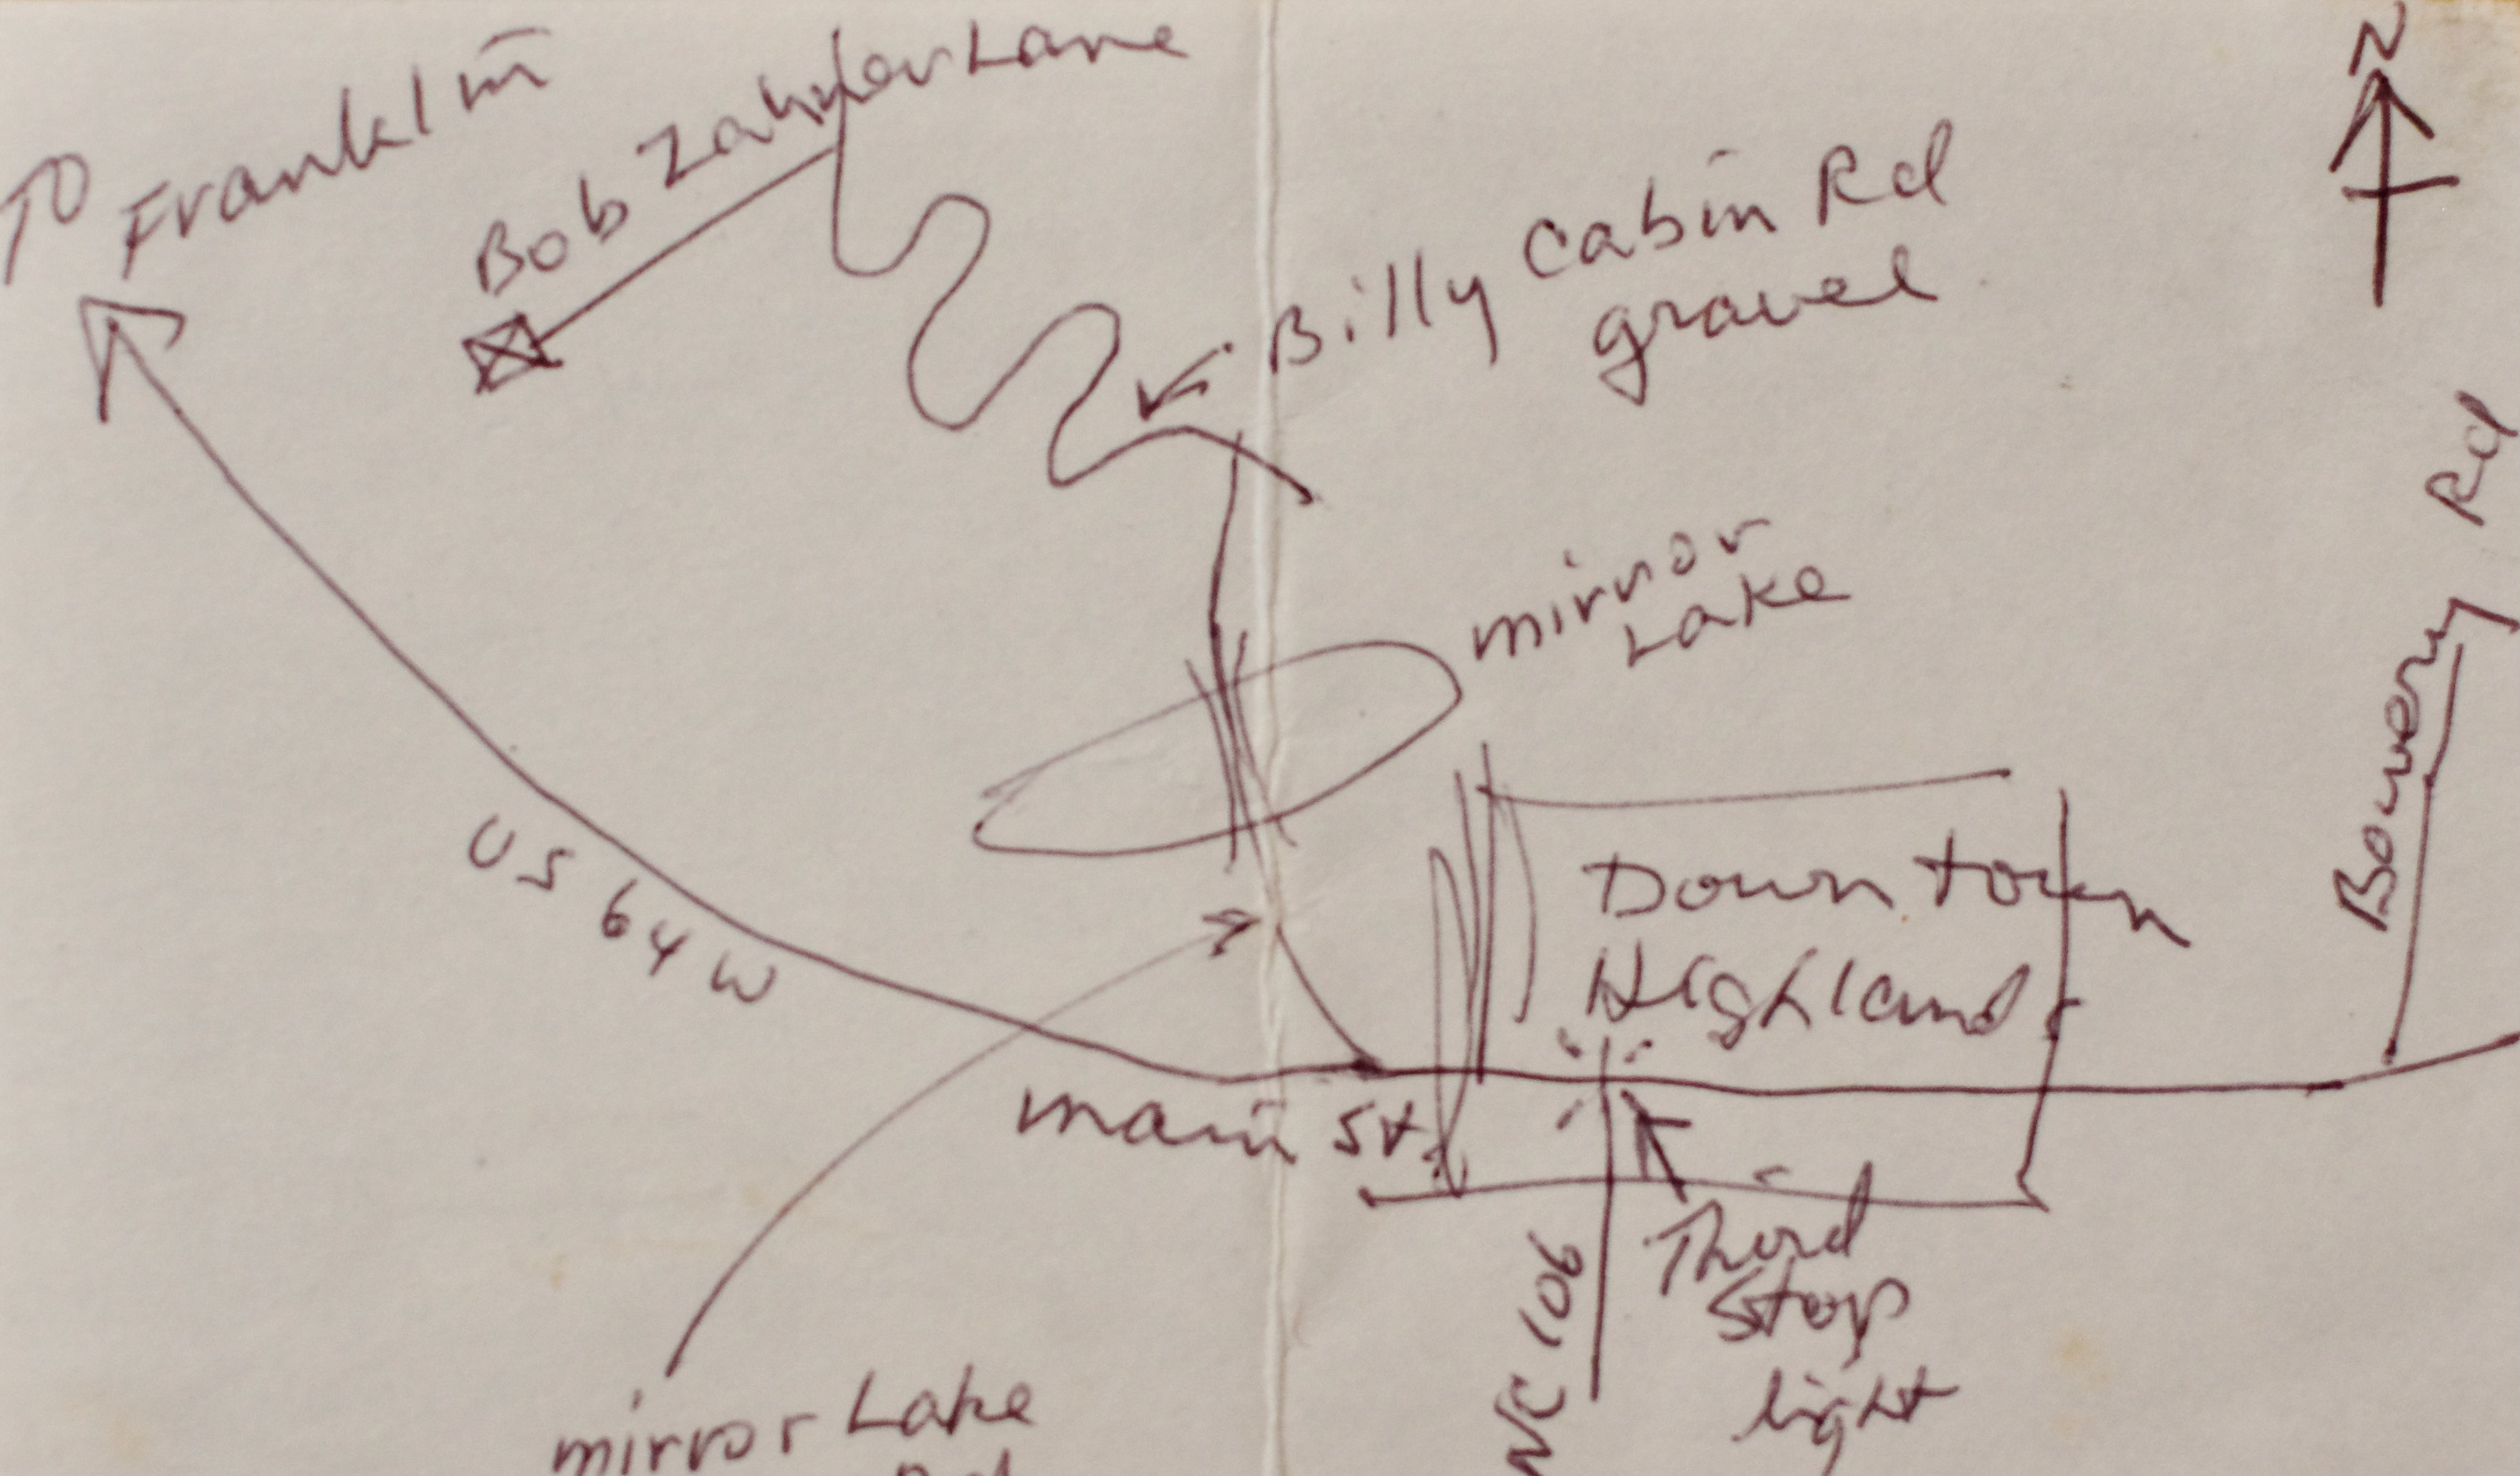 N
TO
Franklin
Bob Zahner Lane
Billy Cabin Rd
gravel
mirror
Lake
Bowery Rd
US 64 W
Down town
Highlands
main St.
NC 106
Third
Stop
light
mirror Lake
Rd